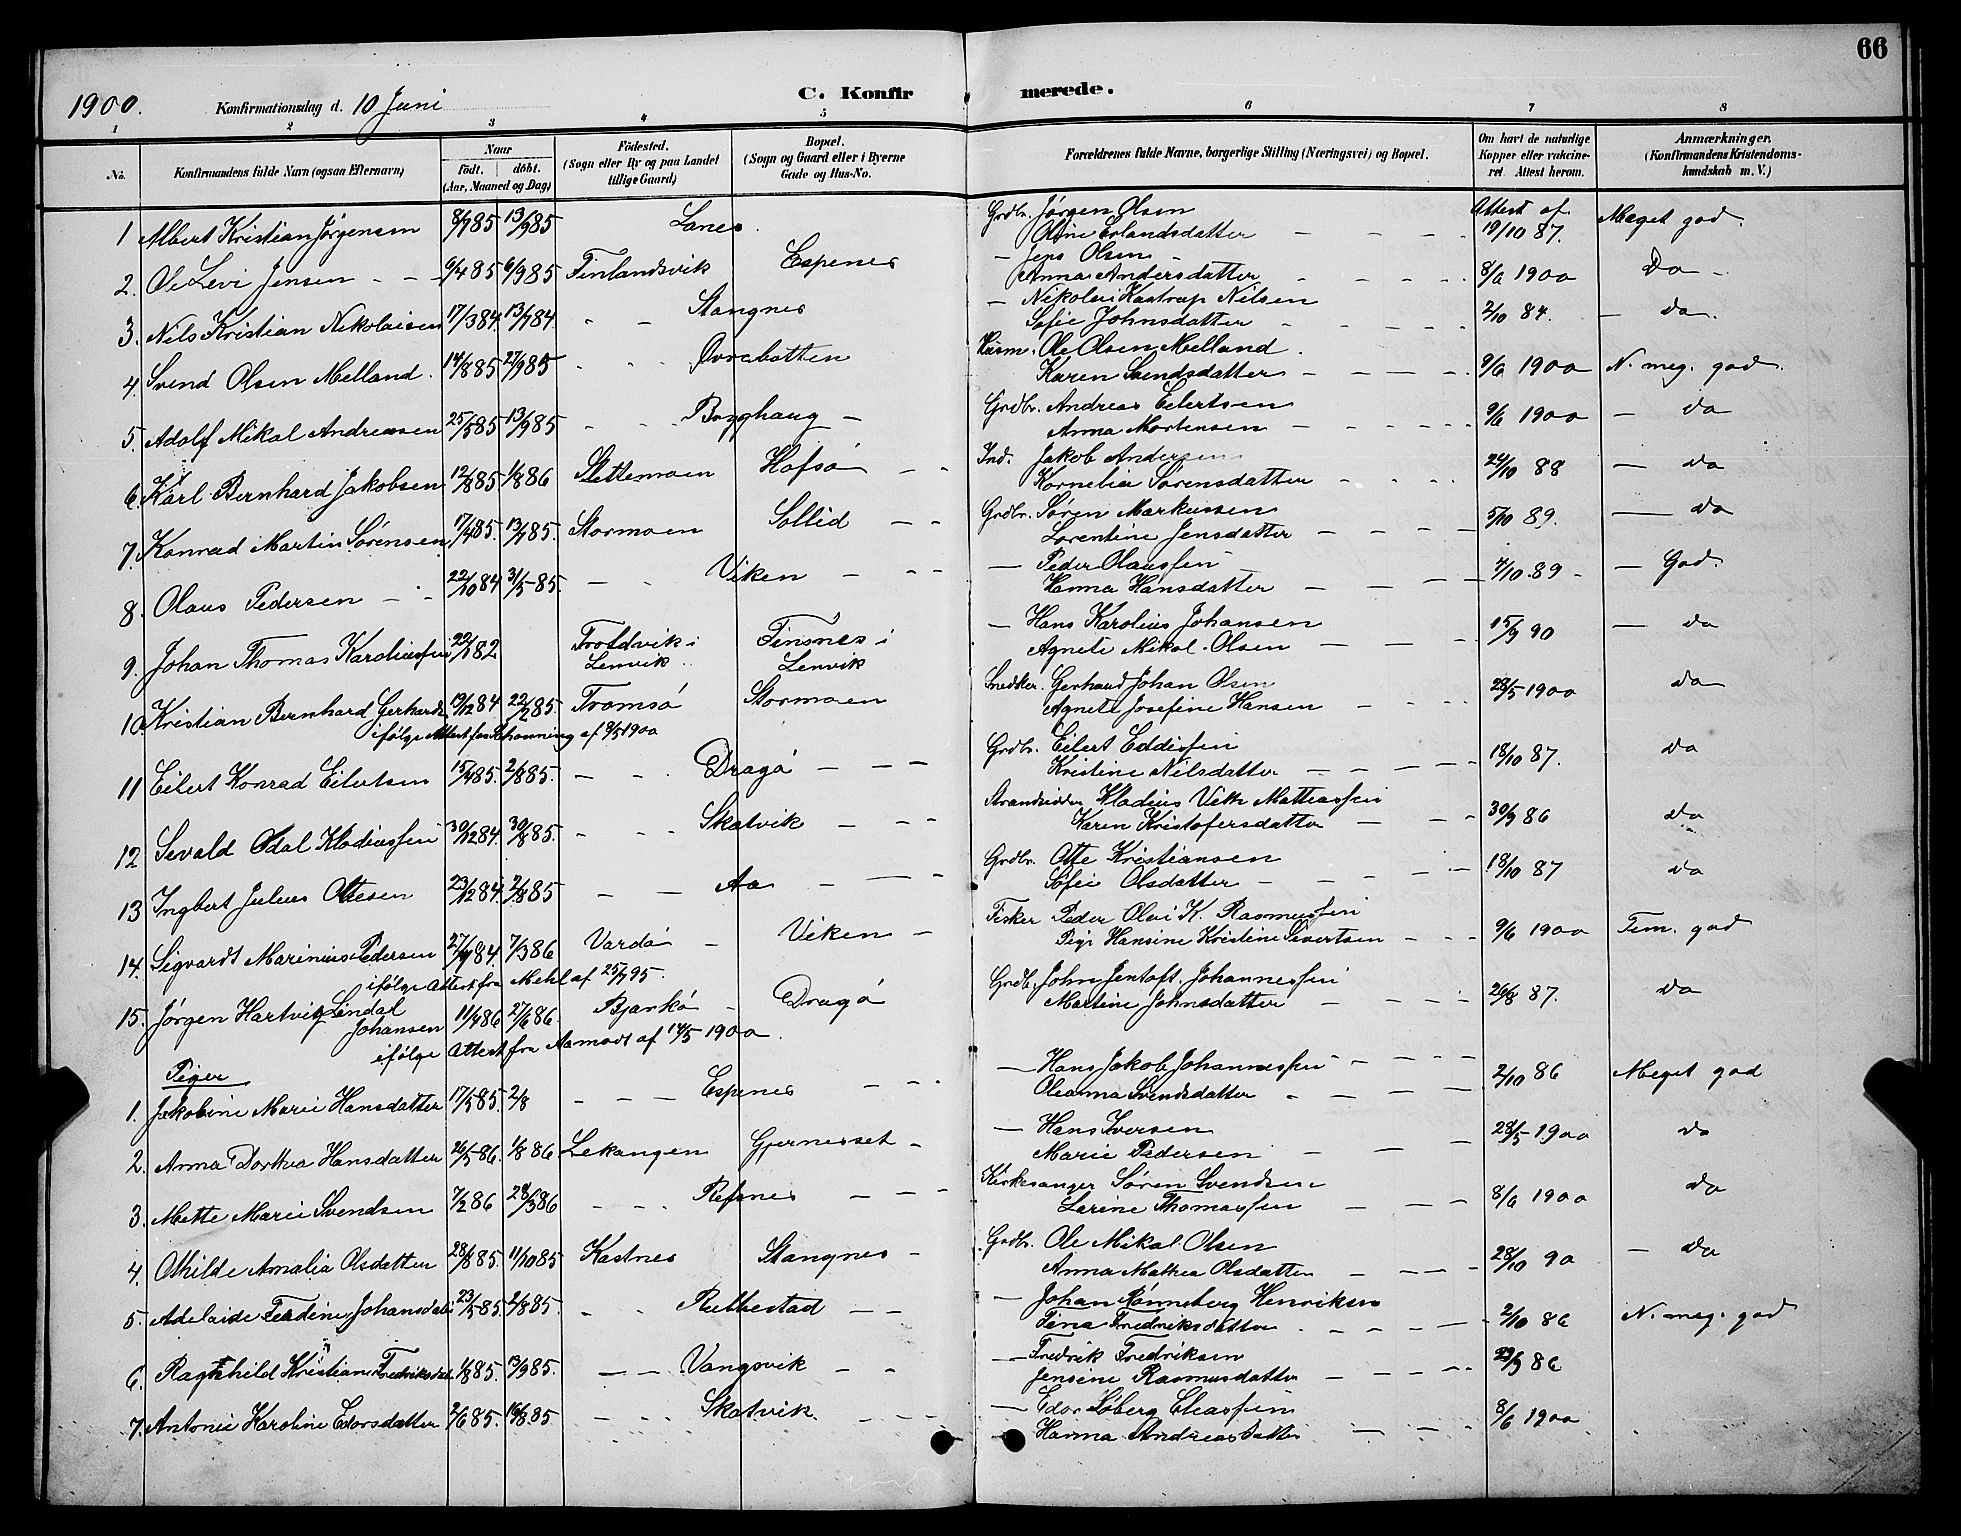 66
1900. Konfirmationsdag d. 10 Juni C. Konfirmerede.
1 2 3 4 5 6 7 8
No. Konfirmandens fulde Navn (ogsaa Efternavn) Naar født. døbt. (Aar, Maaned og Dag) Fødested. (Sogn eller By og paa Landet tillige Gaard) Bopæl. (Sogn og Gaard eller i Byerne Gade og Hus-No. Forældrenes fulde Navne, borgerlige Stilling (Næringsvei) og Bopæl. Om havt de naturlige Kopper eller vaccineret. Attest herom. Anmærkninger. (Konfirmandens Kristendomskundskab m. V.)
1 Albert Kristian Jørgensen 8/7 85 13/9 85 Lanes Grdbr. Jørgen Olsen Attest af Meget god.
Oline Erlandsdatter 19/10 87.
2. Ole Levi Jensen 6/4 85 6/9 85 Finlandsvik Espenes — Jens Olsen
Anna Andersdatter 8/6 1900 Do
3. Nils Kristian Nikolaisen 17/3 84 13/7 84 Stangnes — Nikolai Kastrup Nilsen
Sofie Johnsdatter 2/10 84. — do.
4. Svend Olsen Melland. 14/8 85 27/9 85 Øvrebotten Husm. Ole Olsen Melland.
Karen Svendsdatter 9/6 1900 N. meg. god.
5. Adolf Mikal Andreasen 25/5 85 13/9 85 Bygghaug Grdbr. Andreas Eilertsen
Anna Mortensen 9/6 1900 — do
6. Karl Bernhard Jakobsen 12/8 85 1/8 86 Slettemoen Hofsø Ind. Jakob Andersen
Kornelia Sørensdatter 24/10 88 — do
7. Konrad Martin Sørensen 17/4 85. 13/7 85. Stormoen Sollid Grdbr. Søren Markussen
Lorentine Jensdatter 5/10 89. — do
8. Olaus Pedersen 22/10 84 31/5 85. Viken — Peder Olaussen
Hanna Hansdatter 7/10 89 — God.
9. Johan Thomas Karoliussen 22/7 82 Troldvik i Lenvik Finsnes i Lenvik — Hans Karolius Johansen
Agnete Mikal. Olsen 15/9 90 — do
10 Kristian Bernhard Gerhards. 19/12 84 22/2 85. Tromsø Stormoen Snedker. Gerhard Johan Olsen
Agnete Josefine Hansen 28/5 1900 do
ifølge Attest fra af 18/5 1900
11 Eilert Konrad Eilertsen 15/4 85. 2/8 85. Dragø Grdbr. Eilert Eddissen
Kristine Nilsdatter 18/10 87. do
12 Sevald Odal Kladiussen 30/12 84. 30/8 85. Skatvik Strandsidder Kladius Vik Mathiassen
Karen Kristofersdatter 30/9 86 do
13 Ingbert Julius Ottesen 23/12 84. 2/8 85 Aa Grdbr. Otte Kristiansen
Sofie Olsdatter 18/10 87 do
14. Sigvardt Marinius Pedersen 27/4 84. 7/3 86 Vardø Viken Fisker Peder Olai K. Rasmussen
Pige Hansine Kristine Sivertsen 9/6 1900 Tem. god
ifølge Attest fra Mehl af 25/7 95.
15. Jørgen Hartvig Lindal Johansen 11/4 86 27/6 86. Bjarkø Dragø Grdb. John Jentoft Johannessen
Martine Johnsdatter 26/8 87. do
ifølge Attest fra Aamodt af 14/5 1900.
Piger
1. Jakobine Marie Hansdatter 17/5 85. 2/8 Espenes — Hans Jakob Johannessen
Oleanna Svendsdatter 2/10 86 Meget god
2. Anna Dorthea Hansdatter 26/5 86. 1/8 86 Lekangen Gjernesset — Hans Iversen
Marie Pedersen 28/5 1900 do
3. Mette Marie Svendsen 7/2 86 28/3 86 Refsnes Kirkesanger Søren Svendsen
Larine Thomassen 8/6 1900 do
4. Othilde Amalia Olsdatter 28/8 85. 11/10 85 Kastnes Stangnes Grdbr. Ole Mikal Olsen
Anna Mathea Olsdatter 28/10 90 — do
5. Adelaide Ferdine Johansdat. 23/5 85. 2/8 85. Rubbestad — Johan Rønneberg Henriksen
Fina Fredriksdatter 2/10 86 N. meg. god
6. Ragnhild Kristiane Fredriksdat. 1/8 85. 13/9 85. Vangsvik — Fredrik Fredriksen
Jensine Rasmusdatter 29/9 86
7. Antonie Karoline Edorsdatter 2/6 85. 16/8 85 Skatvik — Edor Søberg Eliassen
Hanna Andreasdatter 8/6 1900